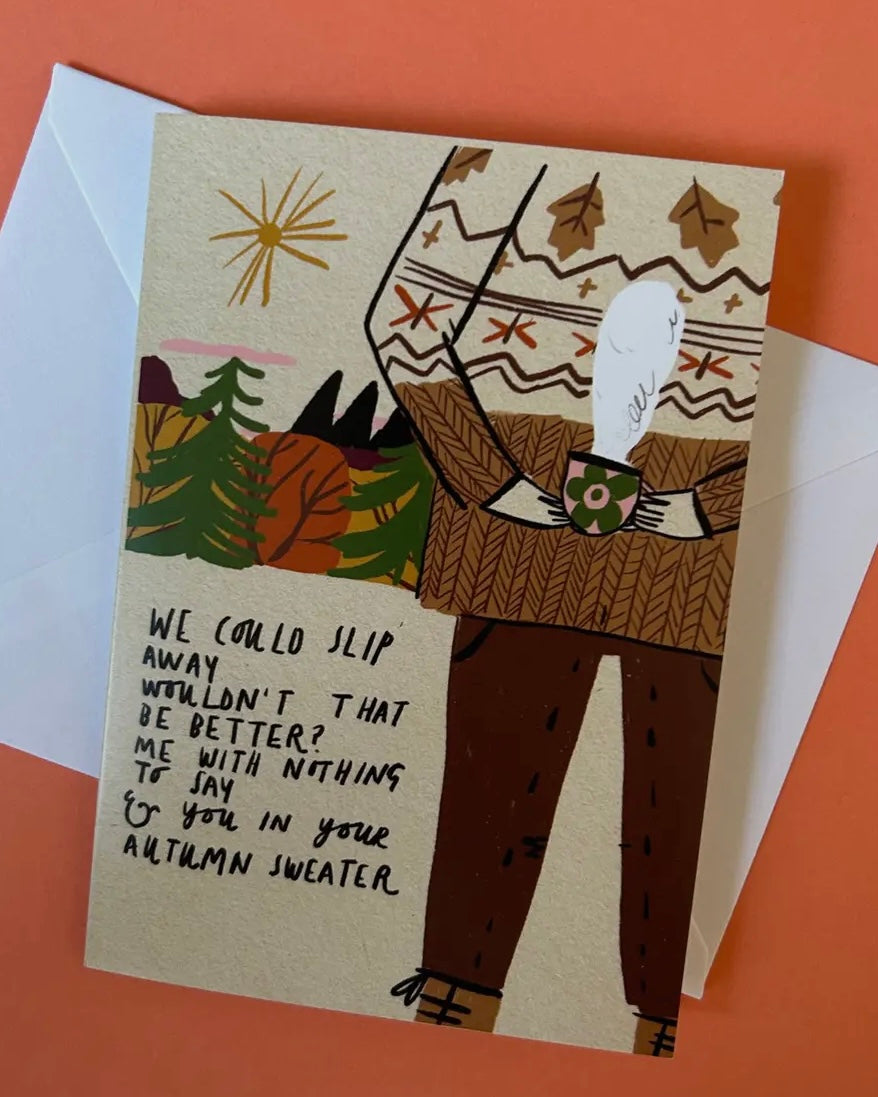 WE COULD SLIP
AWAY
WOULDN'T THAT
BE BETTER?
ME WITH NOTHING
TO SAY
& YOU IN YOUR
AUTUMN SWEATER